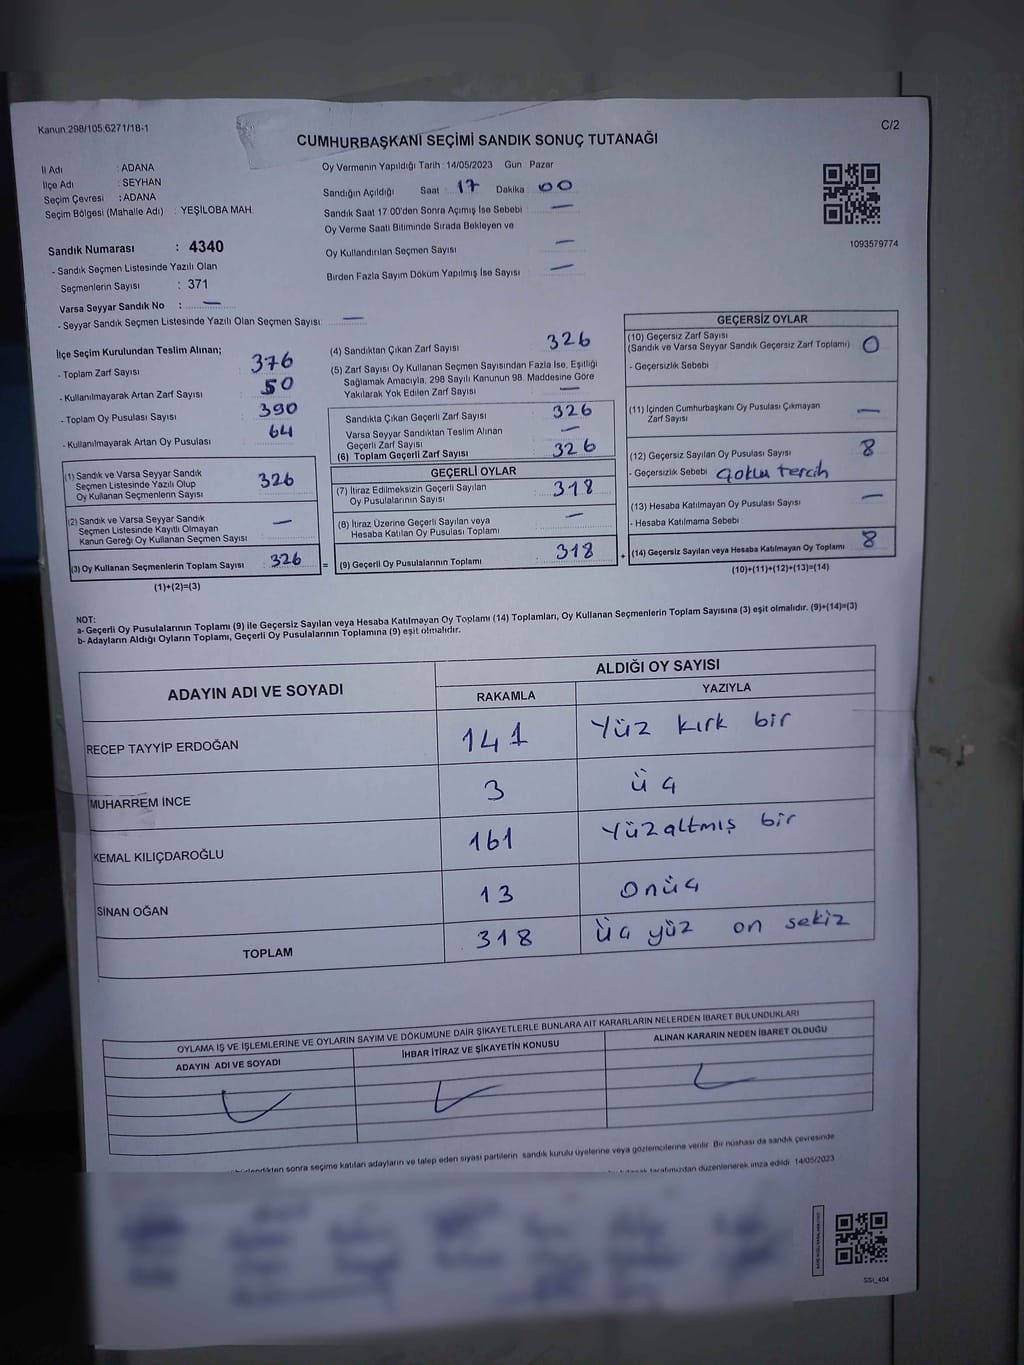 Kanun:298/105;6271/18-1
C/2
CUMHURBAŞKANI SEÇİMİ SANDIK SONUÇ TUTANAĞI
İl Adı : ADANA
İlçe Adı : SEYHAN
Seçim Çevresi : ADANA
Seçim Bölgesi (Mahalle Adı) : YEŞİLOBA MAH.
Sandık Numarası : 4340
- Sandık Seçmen Listesinde Yazılı Olan
Seçmenlerin Sayısı : 371
Varsa Seyyar Sandık No : —
- Seyyar Sandık Seçmen Listesinde Yazılı Olan Seçmen Sayısı: —
Oy Vermenin Yapıldığı Tarih : 14/05/2023 Gün Pazar
Sandığın Açıldığı Saat 17 Dakika 00
Sandık Saat 17:00'den Sonra Açımış İse Sebebi : —
Oy Verme Saati Bitiminde Sırada Bekleyen ve
Oy Kullandırılan Seçmen Sayısı —
Birden Fazla Sayım Döküm Yapılmış İse Sayısı —
1093579774
İlçe Seçim Kurulundan Teslim Alınan;
- Toplam Zarf Sayısı 376
- Kullanılmayarak Artan Zarf Sayısı 50
- Toplam Oy Pusulası Sayısı 390
- Kullanılmayarak Artan Oy Pusulası 64
(1) Sandık ve Varsa Seyyar Sandık
Seçmen Listesinde Yazılı Olup
Oy Kullanan Seçmenlerin Sayısı 326
(2) Sandık ve Varsa Seyyar Sandık
Seçmen Listesinde Kayıtlı Olmayan
Kanun Gereği Oy Kullanan Seçmen Sayısı —
(3) Oy Kullanan Seçmenlerin Toplam Sayısı 326 =
(1)+(2)=(3)
(4) Sandıktan Çıkan Zarf Sayısı 326
(5) Zarf Sayısı Oy Kullanan Seçmen Sayısından Fazla İse, Eşitliği
Sağlamak Amacıyla, 298 Sayılı Kanunun 98. Maddesine Göre
Yakılarak Yok Edilen Zarf Sayısı —
Sandıkta Çıkan Geçerli Zarf Sayısı 326
Varsa Seyyar Sandıktan Teslim Alınan
Geçerli Zarf Sayısı —
(6) Toplam Geçerli Zarf Sayısı 326
GEÇERLİ OYLAR
(7) İtiraz Edilmeksizin Geçerli Sayılan
Oy Pusulalarının Sayısı : 318
(8) İtiraz Üzerine Geçerli Sayılan veya
Hesaba Katılan Oy Pusulası Toplamı —
(9) Geçerli Oy Pusulalarının Toplamı : 318 +
GEÇERSİZ OYLAR
(10) Geçersiz Zarf Sayısı
(Sandık ve Varsa Seyyar Sandık Geçersiz Zarf Toplamı) 0
- Geçersizlik Sebebi
(11) İçinden Cumhurbaşkanı Oy Pusulası Çıkmayan
Zarf Sayısı —
(12) Geçersiz Sayılan Oy Pusulası Sayısı 8
- Geçersizlik Sebebi çoklu tercih
(13) Hesaba Katılmayan Oy Pusulası Sayısı —
- Hesaba Katılmama Sebebi
(14) Geçersiz Sayılan veya Hesaba Katılmayan Oy Toplamı 8
(10)+(11)+(12)+(13)=(14)
NOT:
a- Geçerli Oy Pusulalarının Toplamı (9) ile Geçersiz Sayılan veya Hesaba Katılmayan Oy Toplamı (14) Toplamları, Oy Kullanan Seçmenlerin Toplam Sayısına (3) eşit olmalıdır. (9)+(14)=(3)
b- Adayların Aldığı Oyların Toplamı, Geçerli Oy Pusulalarının Toplamına (9) eşit olmalıdır.
ADAYIN ADI VE SOYADI
ALDIĞI OY SAYISI
RAKAMLA YAZIYLA
RECEP TAYYİP ERDOĞAN 141 Yüz kırk bir
MUHARREM İNCE 3 üç
KEMAL KILIÇDAROĞLU 161 Yüzaltmış bir
SİNAN OĞAN 13 onüç
TOPLAM 318 üç yüz on sekiz
OYLAMA İŞ VE İŞLEMLERİNE VE OYLARIN SAYIM VE DÖKÜMÜNE DAİR ŞİKAYETLERLE BUNLARA AİT KARARLARIN NELERDEN İBARET BULUNDUKLARI
ADAYIN ADI VE SOYADI
İHBAR İTİRAZ VE ŞİKAYETİN KONUSU
ALINAN KARARIN NEDEN İBARET OLDUĞU
sonra seçime katılan adayların ve talep eden siyasi partilerin sandık kurulu üyelerine veya gözlemcilerine verilir. Bir nüshası da sandık çevresinde
tarafımızdan düzenlenerek imza edildi. 14/05/2023
SSİ_404